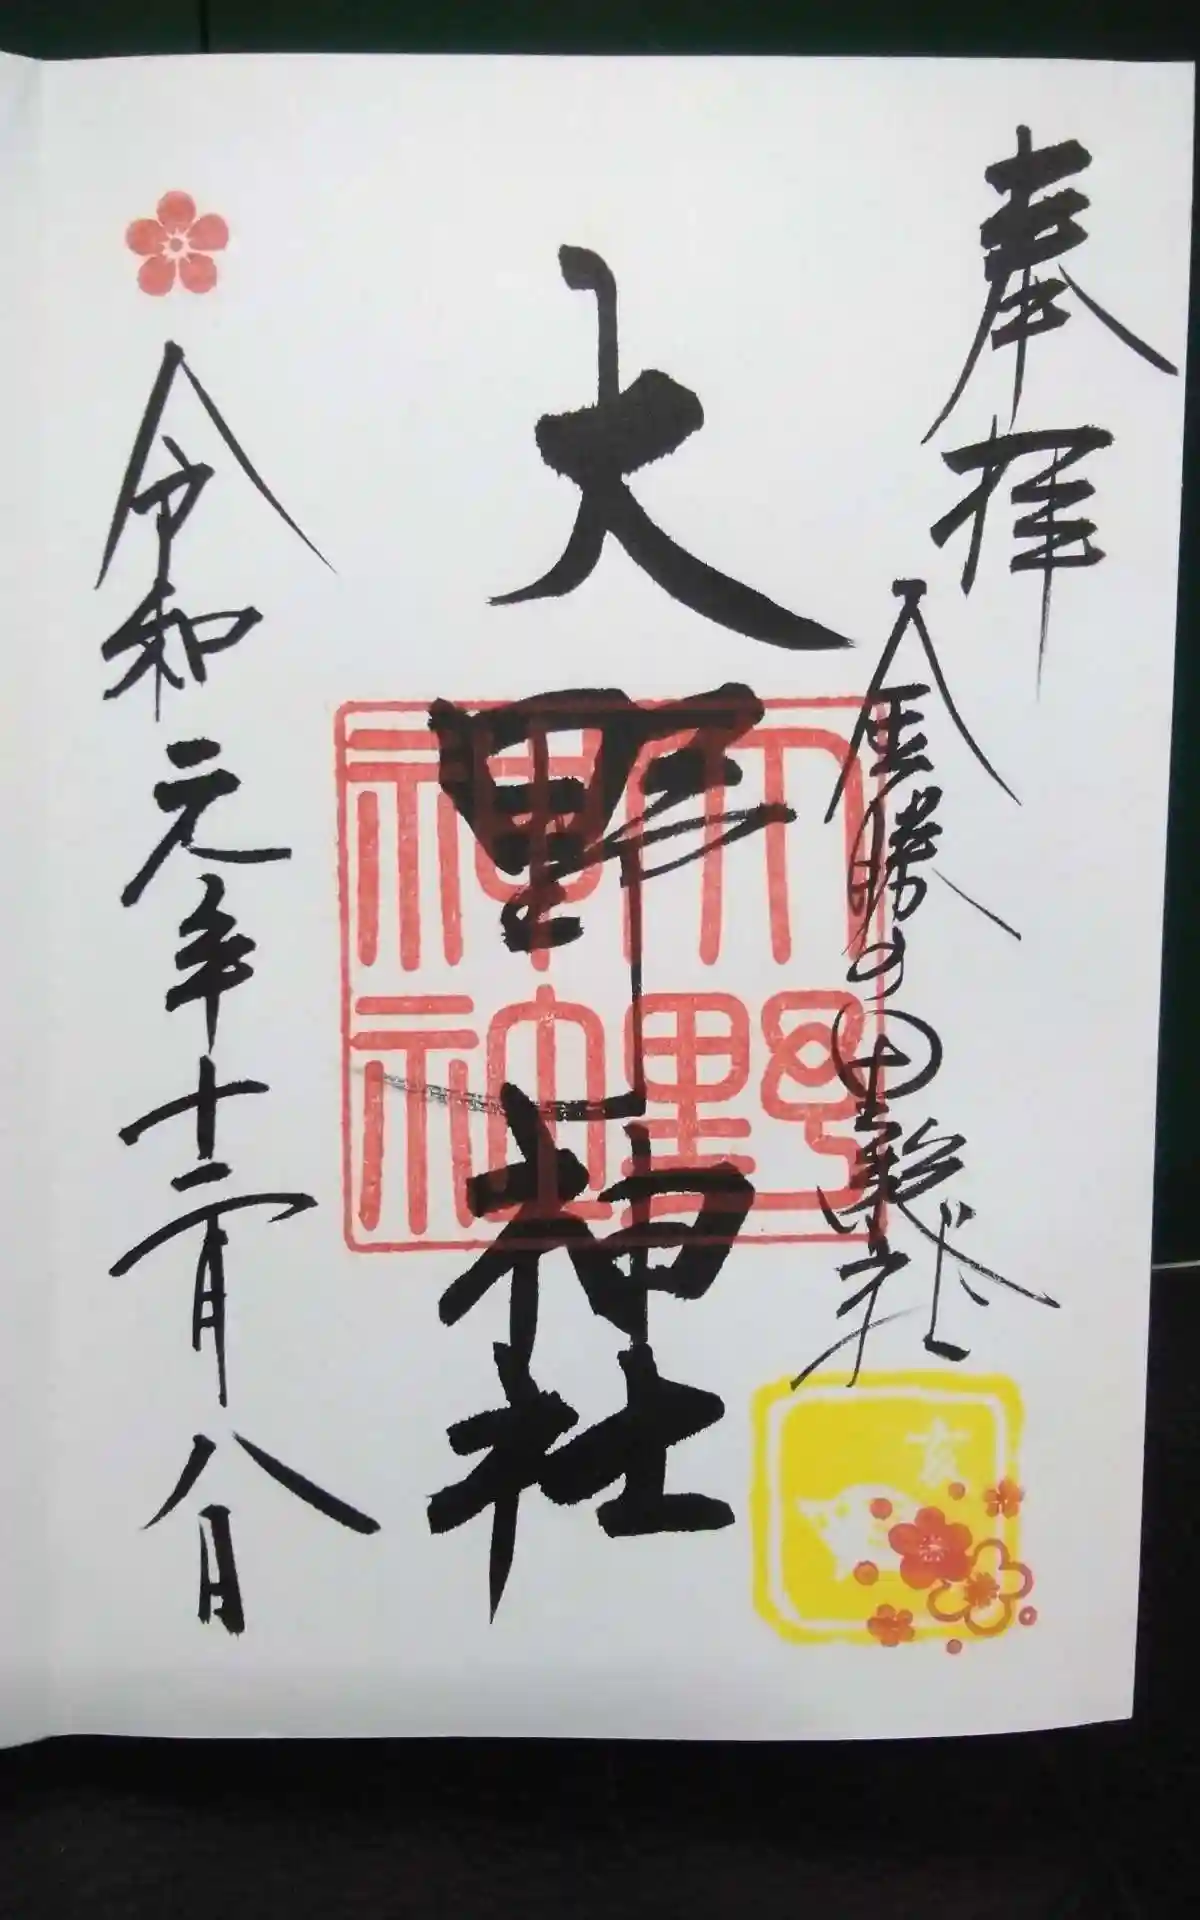 奉拝
金勝の里総社
大野神社
大野神社
令和元年十二月八日
亥